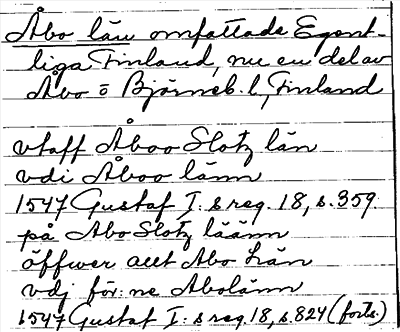 Åbo län omfattade Egent-
liga Finland, nu en del av
Åbo o Björneb. l, Finland
vtaff Åboo Slotz län
vdi Åboo länn
1547 Gustaf I: s reg. 18, s. 359.
på Abo Slotz läänn
öffwer allt Abo Län
vdj för: ne Abolänn
1547 Gustaf I: s reg. 18, s. 824 (forts.)